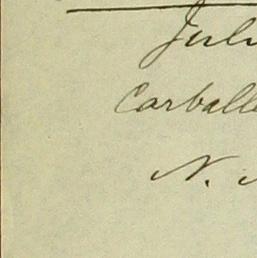 Juli
Carballe
N.